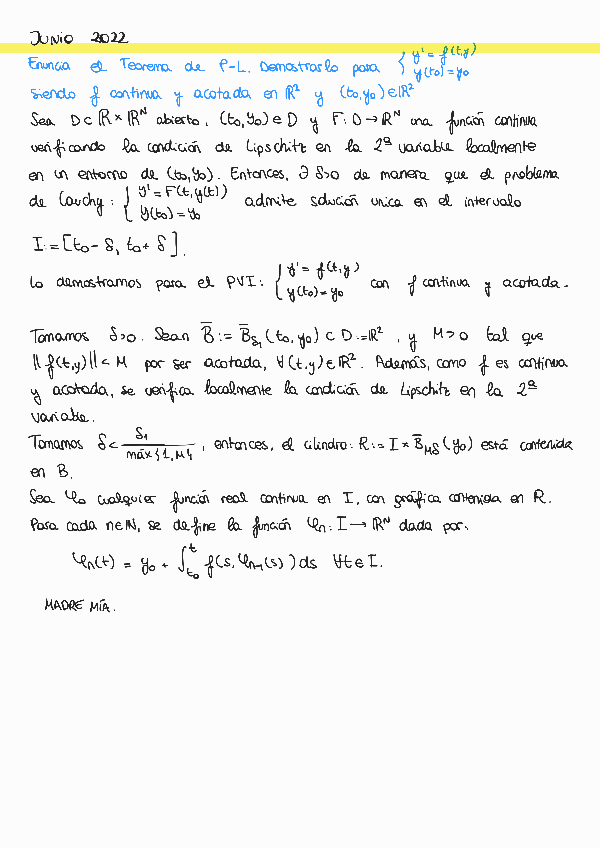 JUNIO 2022
Enuncia el Teorema de P-L. Demostrarlo para { y' = f(t,y)
y(t₀) = y₀
siendo f continua y acotada en ℝ² y (t₀,y₀) ∈ ℝ²
Sea D ⊂ ℝ × ℝᴺ abierto, (t₀, y₀) ∈ D y F: D → ℝᴺ una función continua
verificando la condición de Lipschitz en la 2ª variable localmente
en un entorno de (t₀, y₀). Entonces, ∃ δ>0 de manera que el problema
de Cauchy: { y' = F(t, y(t))
y(t₀) = y₀ admite solución unica en el intervalo
I := [t₀ - δ, t₀ + δ].
Lo demostramos para el PVI: { y' = f(t,y)
y(t₀) = y₀ con f continua y acotada.
Tomamos δ>0. Sean B̄ := B̄_δ₁ (t₀, y₀) ⊂ D := ℝ², y M>0 tal que
‖f(t,y)‖ < M por ser acotada, ∀(t,y) ∈ ℝ². Además, como f es continua
y acotada, se verifica localmente la condición de Lipschitz en la 2ª
variable.
Tomamos δ < δ₁ / máx{1,M}, entonces, el cilindro: R := I × B̄_Mδ (y₀) está contenida
en B.
Sea φ₀ cualquier función real continua en I, con gráfica contenida en R.
Para cada n∈ℕ, se define la función φₙ: I → ℝᴺ dada por:
φₙ(t) = y₀ + ∫_t₀^t f(s, φₙ₋₁(s)) ds ∀t ∈ I.
MADRE MÍA.